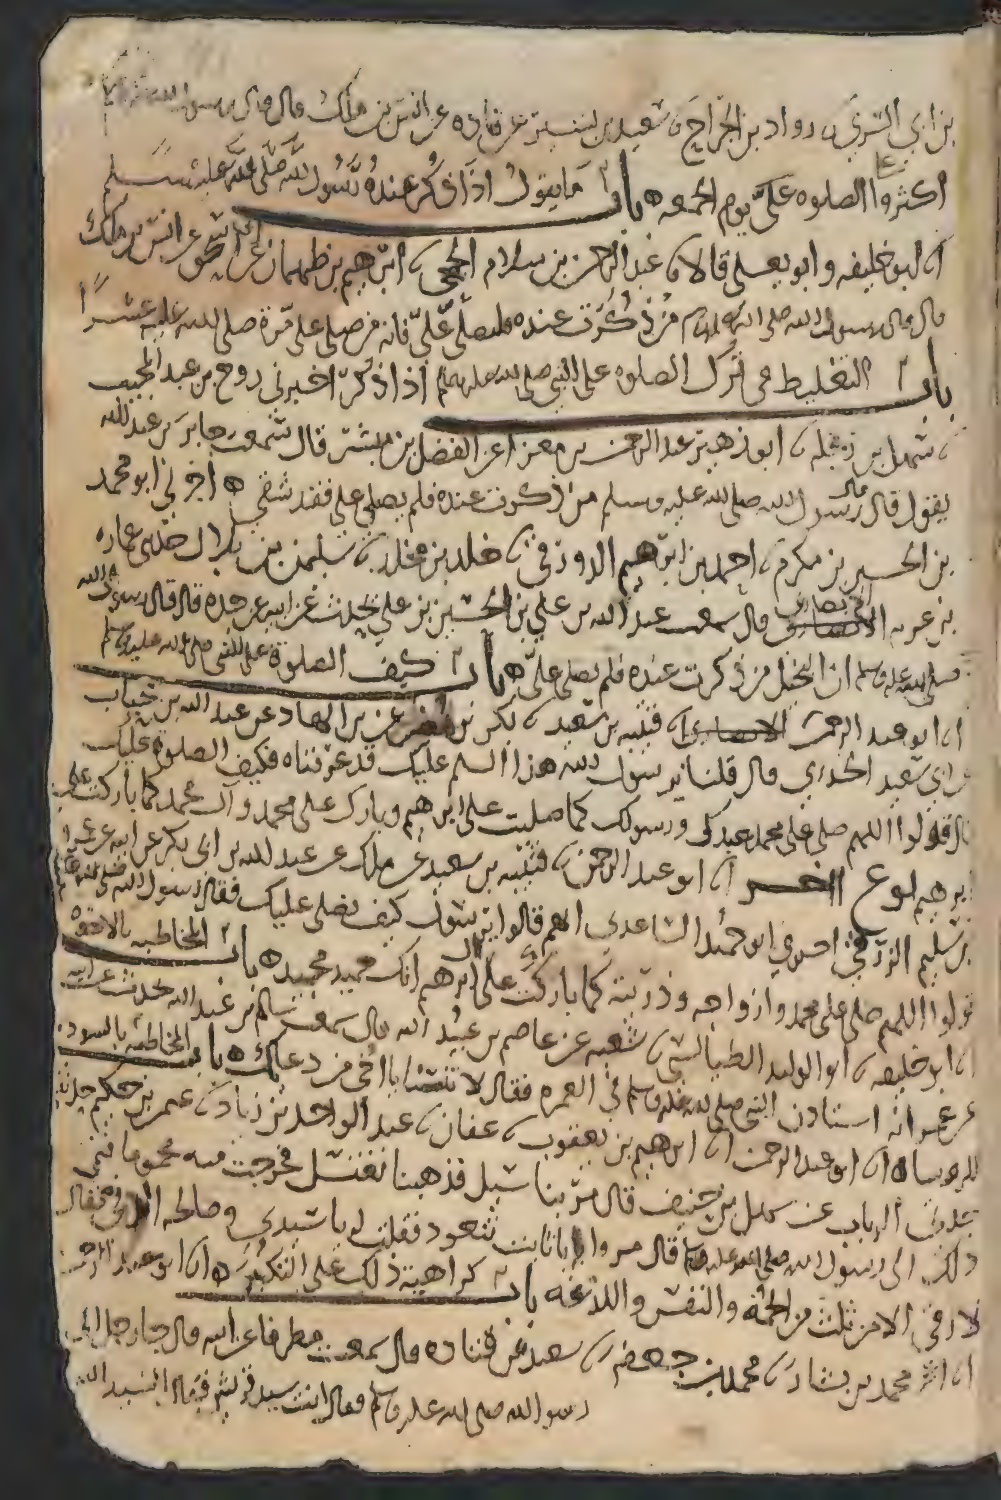 بن ابي السري ، رواد بن الجراح ، سعيد بن بشير عن قتاده عن انس بن ملك قال قال رسول الله
اكثروا الصلوه علي يوم الجمعه ه باب ما يقول اذا ذكر عنده رسول الله صلى الله عليه وسلم
انا ابو خليفه وابو يعلى قالا ، عبد الرحمن بن سلام الجمحي ، ابرهيم بن طهمان عن ابي اسحق عن انس بن ملك
قال قال رسول الله صلى الله عليه وسلم من ذكرت عنده فليصلي علي فانه من صلى علي مرة صلى الله عليه عشرا
باب التغليط في ترك الصلوه على النبي صلى الله عليه وسلم اذا ذكر اخبرني روح بن عبد المجيب
، سهل بن زنجله ، ابو زهير عبد الرحمن بن مغرا عن الفضل بن مبشر قال سمعت جابر بن عبد الله
يقول قال رسول الله صلى الله عليه وسلم من ذكرت عنده فلم يصلي علي فقد شقي ه اخبرني ابو محمد
بن الحسين بن مكرم ، احمد بن ابرهيم الدورقي ، خلد بن مخلد ، سليمن بن بلال حدثني عماره
بن غزيه الانصاري قال سمعت عبد الله بن علي بن الحسين بن علي يحدث عن ابيه عن جده قال قال رسول الله
صلى الله عليه وسلم ان البخيل من ذكرت عنده فلم يصلي علي ه باب كيف الصلوة على النبي صلى الله عليه وسلم
انا ابو عبد الرحمن ، قتيبه بن سعيد ، بكر بن مضر عن بن الهاد عن عبد الله بن خباب
عن ابي سعيد الخدري قال قلنا يا رسول الله هذا السلم عليك قد عرفناه فكيف الصلوة عليك
قال قولوا اللهم صلي على محمد عبدك ورسولك كما صليت على ابرهيم وبارك على محمد وآل محمد كما باركت على
ابرهيم نوع اخر انا ابو عبد الرحمن ، قتيبه بن سعيد عن ملك عن عبد الله بن ابي بكر عن ابيه عن عمرو
بن سليم الزرقي اخبرني ابو حميد الساعدي انهم قالوا يا رسول كيف نصلي عليك فقال رسول الله صلى الله عليه وسلم
قولوا اللهم صلي على محمد وازواجه وذريته كما باركت على آل ابرهيم انك حميد مجيد ه باب المخاطبه بالاخوة
انا ابو خليفه ، ابو الوليد الطيالسي ، شعبه عن عاصم بن عبيد الله قال سمعت سالم بن عبد الله يحدث عن ابيه
عن عمر انه استاذن النبي صلى الله عليه وسلم في العمره فقال لا تنسنا يا اخي من دعائك ه باب المخاطبه بالسودد
للروسا ه انا ابو عبد الرحمن انا ابرهيم بن يعقوب ، عفان ، عبد الواحد بن زياد ، عثمن بن حكيم حدثتني
جدتي الرباب عن سهل بن حنيف قال مر بنا سيل فذهبنا نغتسل فخرجت منه محموما فنمي
ذلك الى رسول الله صلى الله عليه وسلم قال مروا ابا ثابت يتعوذ فقلت يا سيدي وصالحه الرقى فقال
لا رقى الا من ثلث من الحمة والنفس واللدغه باب كراهية ذلك على التكبر ه انا ابو عبد الرحمن
انا محمد بن بشار ، محمد بن جعفر ، سعيد عن قتاده قال سمعت مطرفا عن ابيه قال جا رجل الى
رسول الله صلى الله عليه وسلم فقال انت سيد قريش فقال السيد الله